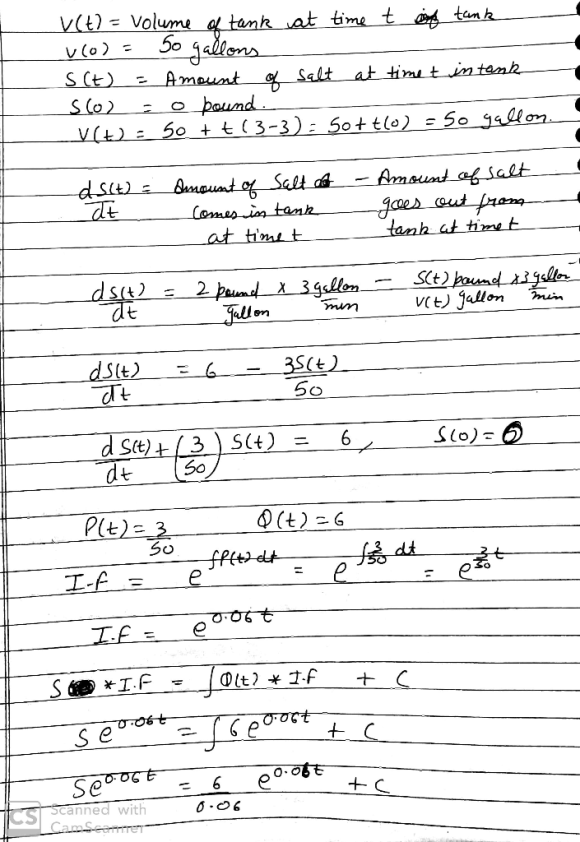 V(t) = Volume of tank at time t of tank
V(0) = 50 gallons
S(t) = Amount of salt at time t in tank
S(0) = 0 pound.
V(t) = 50 + t(3-3) = 50+t(0) = 50 gallon.
dS(t)/dt = Amount of Salt comes in tank at time t − Amount of salt goes out from tank at time t
dS(t)/dt = 2 pound/gallon x 3 gallon/min − S(t) pound/V(t) gallon x 3 gallon/min
dS(t)/dt = 6 − 3S(t)/50
dS(t)/dt + (3/50) S(t) = 6, S(0) = 0
P(t) = 3/50 Q(t) = 6
I-f = e^∫P(t) dt = e^∫3/50 dt = e^3/50 t
I.f = e^0.06t
S * I.F = ∫Q(t) * I.F + C
S e^0.06t = ∫6 e^0.06t + C
Se^0.06t = 6/0.06 e^0.06t + C
CS Scanned with
CamScanner